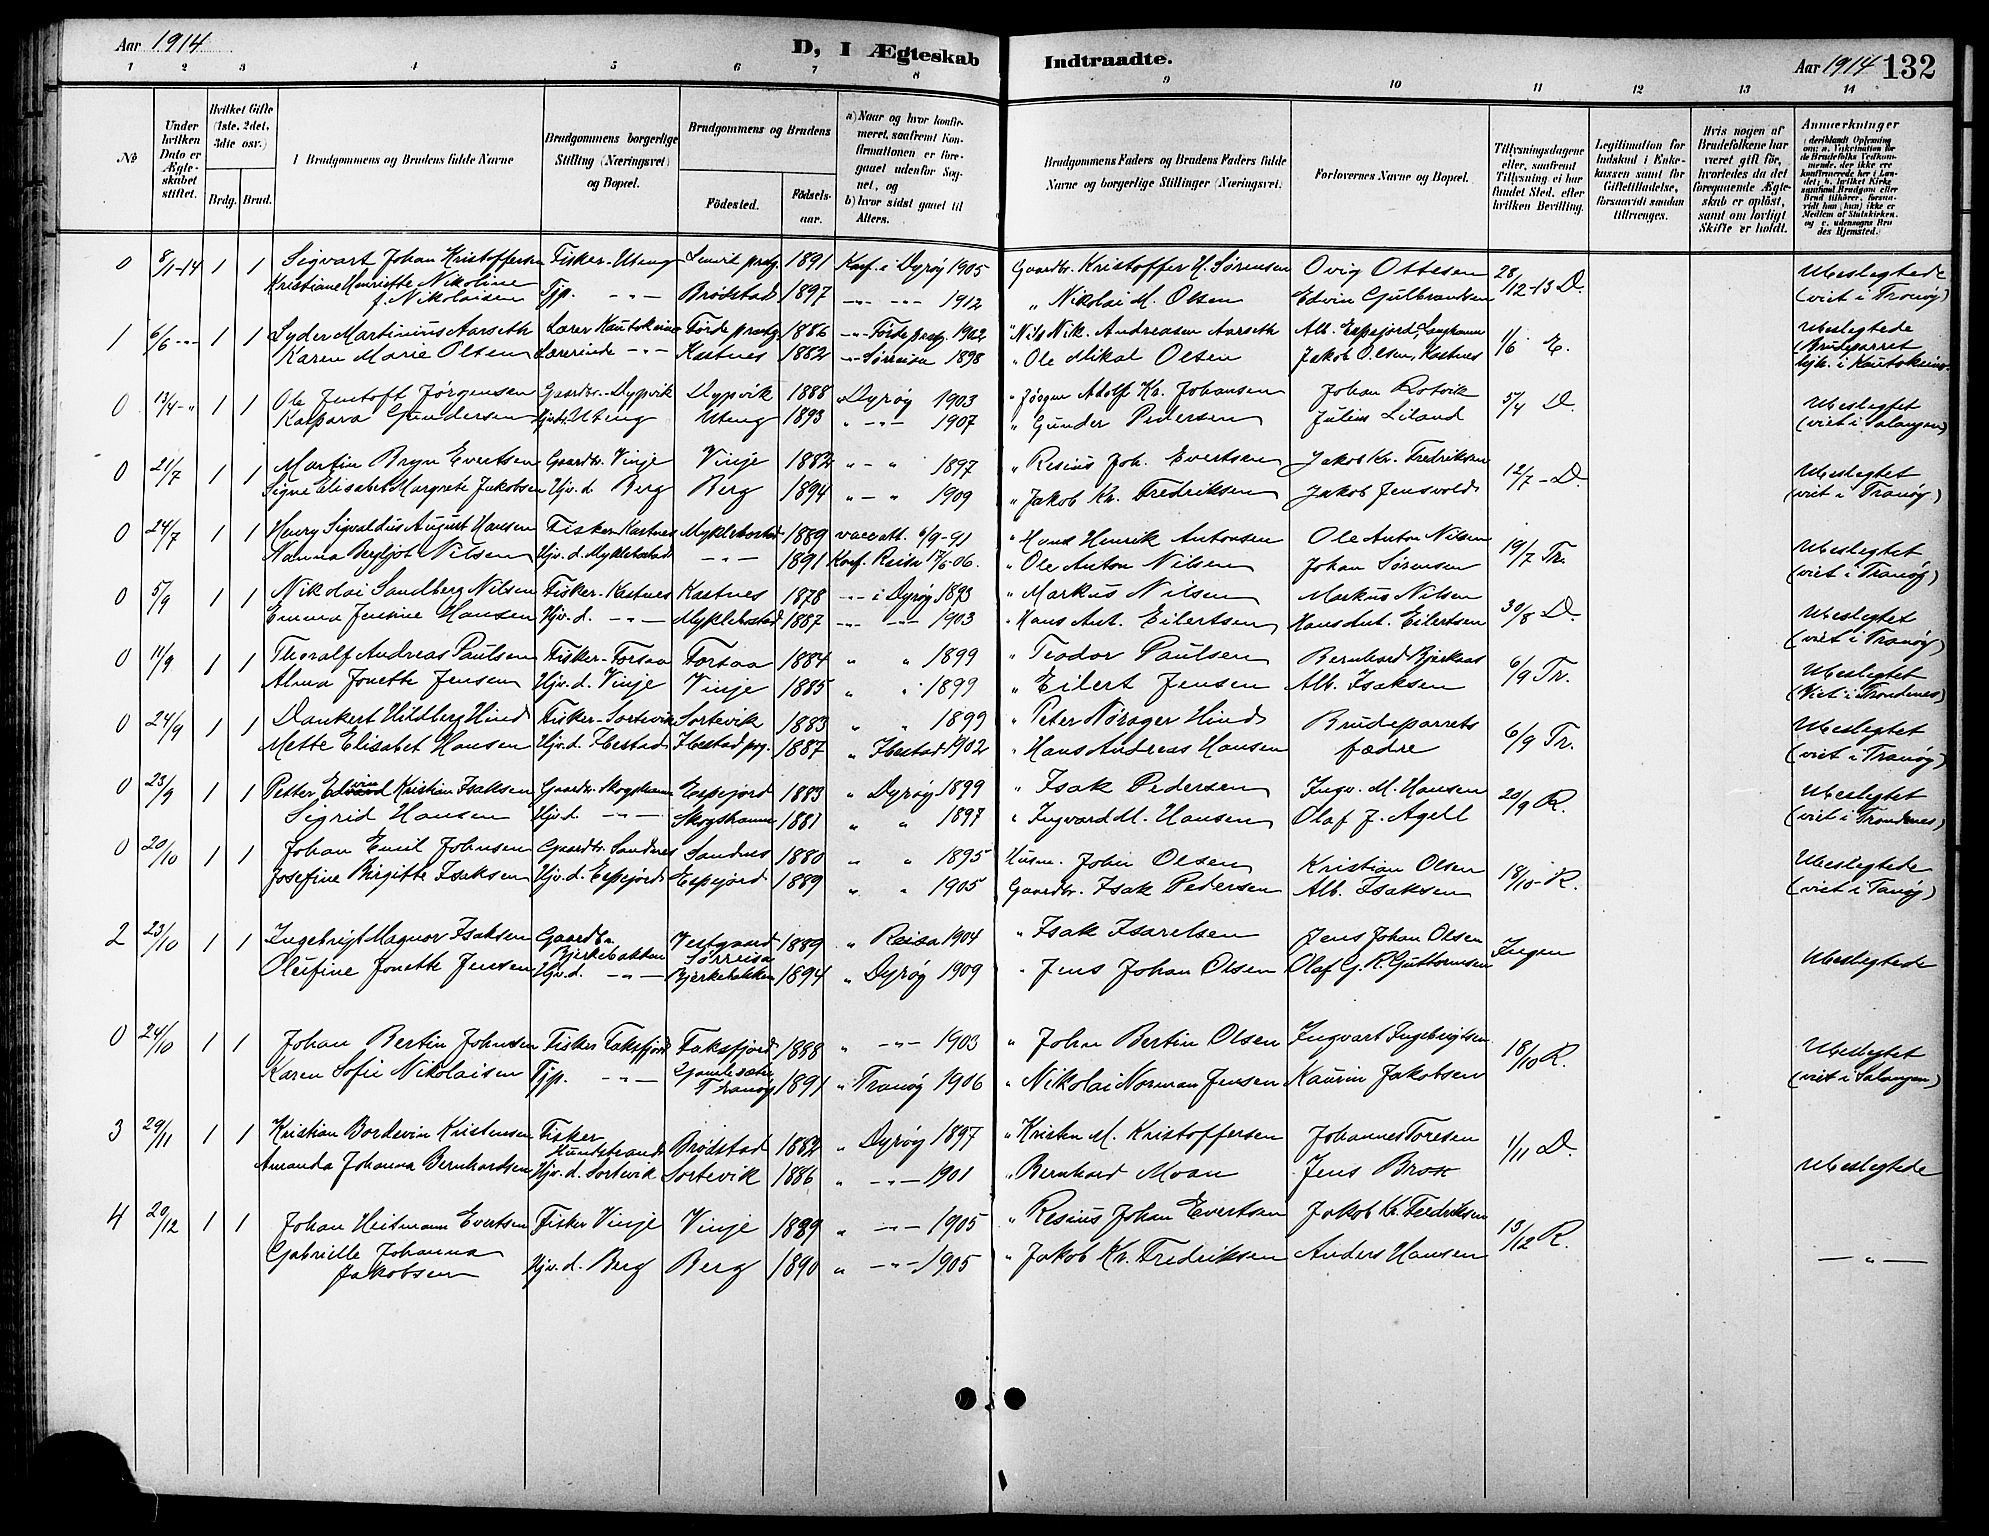 Aar 1914
D, I Ægteskab Indtraadte.
Aar 1914 132
1 2 3 4 5 6 7 8 9 10 11 12 13 14
No
Under hvilken Dato er Ægteskabet stiftet.
Hvilket Gifte (1ste, 2det, 3die osv.)
Brdg. Brud.
Brudgommens og Brudens fulde Navne
Brudgommens borgerlige Stilling (Næringsvei) og Bopæl.
Brudgommens og Brudens
Födested. Födselsaar.
a) Naar og hvor konfirmeret, saafremt Konfirmationen er foregaaet udenfor Sognet, og
b) hvor sidst gaaet til Alters.
Brudgommens Faders og Brudens Faders fulde Navne og borgerlige Stillinger (Næringsvei.
Forlovernes Navne og Bopæl.
Tillysningsdagene eller, saafremt Tillysning ei har fundet Sted, efter hvilken Bevilling.
Legitimation for Indskud i Enkekassen samt for Giftetilladelse, forsaavidt saadan tiltrænges.
Hvis nogen af Brudefolkene har været gift för, hvorledes da det foregaaende Ægteskab er oplöst, samt om lovligt Skifte er holdt.
Anmærkninger
0 8/1-14 1 1 Sigvart Johan Kristoffersen Fisker-Uteng 1891 Konf. i Dyrøy 1905 Gaardbr. Kristoffer H. Sørensen Ovig Ottesen 28/12-13 D. Ubeslegtede
Kristiane Henriette Nikoline Nikolaisen Tjp. -"- Brödstad 1897 -"- -"- 1912 " Nikolai M. Olsen Edvin Gulbrandsen (viet i Tranöy)
1 6/6 -"- 1 1 Lyder Martinius Aarseth Lærer Kautokeino Förde prestg. 1886 -"- Förde prestg. 1902 " Nils Nik. Andreasen Aarseth Alb. Espejord, 1/6 E. Ubeslegtede
Karen Marie Olsen Lærerinde -"- Kastnes 1882 -"- Sørreisa 1898 " Ole Mikal Olsen Jakob Olsen, Kastnes (Brudeparret i Kautokeino.
0 13/4-" 1 1 Ole Jentoft Jørgensen Gaardbr. Dypvik Dypvik 1888 " Dyrøy 1903 " Jørgen Adolf Kr. Johansen Johan Rotvik 5/4 D. Ubeslegtet
Kaspara Gundersen Uteng Uteng 1893 " -"- 1907 " Gunder Pedersen Julius Liland (viet i Salangen)
0 21/7 1 1 Martin Bryn Evertsen Gaardbr. Vinje Vinje 1882 " - " 1897 " Resius Joh. Evertsen Jakob Kr. Fredriksen 12/7 - D. Ubeslegtet
Signe Elisabet Margrete Jakobsen Hjv. d. Berg Berg 1894 " - " 1909 " Jakob Kr. Fredriksen Jakob Jensvold (viet i Tranøy)
0 24/7 1 1 Henry Sigvaldus August Hansen Fisker Kastnes Myklebostad 1889 vacc. att. 6/9-91 " Hans Henrik Antonsen Ole Anton Nilsen 19/7 Tr. Ubeslegtet
Nanna Bergljot Nilsen Hjv. d. Myklebostad -"- 1891 Konf. Reisa 17/6-06. " Ole Anton Nilsen Johan Sørensen (viet i Tranöy)
0 5/9 1 1 Nikolai Sandberg Nilsen Fisker-Kastnes Kastnes 1878 -"- i Dyrøy 1893 " Markus Nilsen Markus Nilsen 30/8 D. Ubeslegtet
Emma Jensine Hansen Hjv. d. -"- Myklebostad 1887 -"- -"- 1903 " Hans Ant. Eilertsen Hans Ant. Eilertsen (viet i Tranøy)
0 11/9 1 1 Thoralf Andreas Paulsen Fisker-Forsaa Forsaa 1884 " " 1899 " Teodor Paulsen Bernhard Bjerkaas 6/9 Tr. Ubeslegtet
Alma Jonette Jensen Hjv. d. Vinje Vinje 1885 " " 1899 " Eilert Jensen Alb. Isaksen (Viet i Trondenes)
0 24/9 1 1 Dankert Hildberg Hind Fisker-Sortevik Sortevik 1883 " " 1899 " Peter Nørager Hind Brudeparrets 6/9 Tr. Ubeslegtet
Mette Elisabet Hansen Hjv. d. Ibestad Ibestad prg. 1887 " Ibestad 1902 " Hans Andreas Hansen fædre (viet i Tranøy)
0 23/9 1 1 Petter Edvin Kristian Isaksen Gaardbr. Skogshamn Espejord 1883 " Dyrøy 1899 " Isak Pedersen Ingv. M. Hansen 20/9 R. Ubeslegtet
Sigrid Hansen Hjv. d. -"- Skogshamn 1881 " " 1897 " Ingvard M. Hansen Olaf J. Agell (viet i Trondenes)
0 20/10 1 1 Johan Emil Johnsen Gaardbr. Sandnes Sandnes 1880 " " 1895 Husm. John Olsen Kristian Olsen 18/10- R. Ubeslegtede
Josefine Birgitte Isaksen Hjv. d. Espejord Espejord 1889 " " 1905 Gaardbr. Isak Pedersen Alb. Isaksen (viet i Tanöy)
2 23/10 1 1 Ingebrigt Magnor Isaksen Gaardbr. Bjerkebakken Vestgaard Sørreisa 1889 " Reisa 1904 " Isak Isarelsen Jens Johan Olsen Ingen Ubeslegtede
Olufine Jonette Jensen Hjv. d. -"- Bjerkebakken 1894 " Dyrøy 1909 " Jens Johan Olsen Olaf G. R. Guttormsen
0 24/10 1 1 Johan Bertin Johnsen Fisker Faksfjord Faksfjord 1888 " -"- 1903 " John Bertin Olsen Ingvart Ingebrigtsen 18/10 R. Ubeslegtet
Karen Sofie Nikolaisen Tjp. -"- Tranöy 1891 " Tranöy 1906 " Nikolai Norman Jensen Kaurin Jakobsen (viet i Salangen)
3 29/11 1 1 Kristian Bordevin Kristensen Fisker Brödstad 1882 " Dyrøy 1897 " Kristen M. Kristoffersen Johannes Toresen 1/11 D. Ubeslegtede
Amanda Johanna Bernhardsen Hjv. d. Sortevik Sortevik 1886 " -"- 1901 " Bernhard Moan Jens Brox
4 20/12 1 1 Johan Heitmann Evertsen Fisker Vinje Vinje 1889 " -"- 1905 " Resius Johan Evertsen Jakob Kr. Fredriksen 13/12 R. -"-
Gabrielle Johanna Jakobsen Hjv. d. Berg Berg 1890 " -"- 1905 " Jakob Kr. Fredriksen Anders Hansen